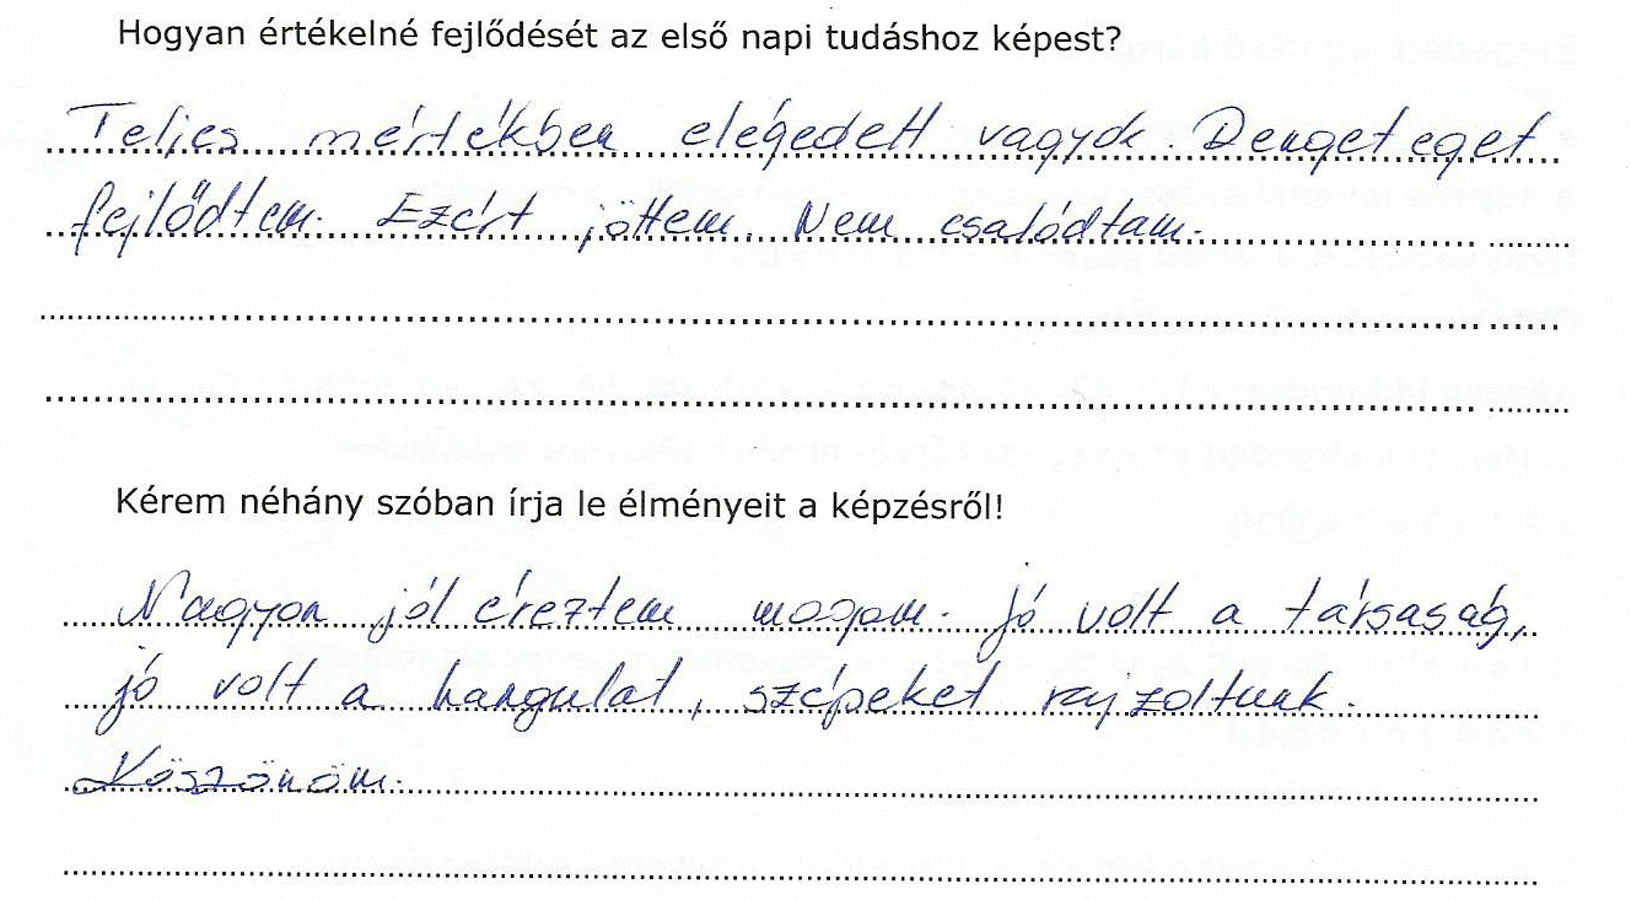 Hogyan értékelné fejlődését az első napi tudáshoz képest?
Teljes mértékben elégedett vagyok. Rengeteget
fejlődtem. Ezért jöttem. Nem csalódtam.
Kérem néhány szóban írja le élményeit a képzésről!
Nagyon jól éreztem magam. Jó volt a társaság,
jó volt a hangulat, szépeket rajzoltunk.
Köszönöm.